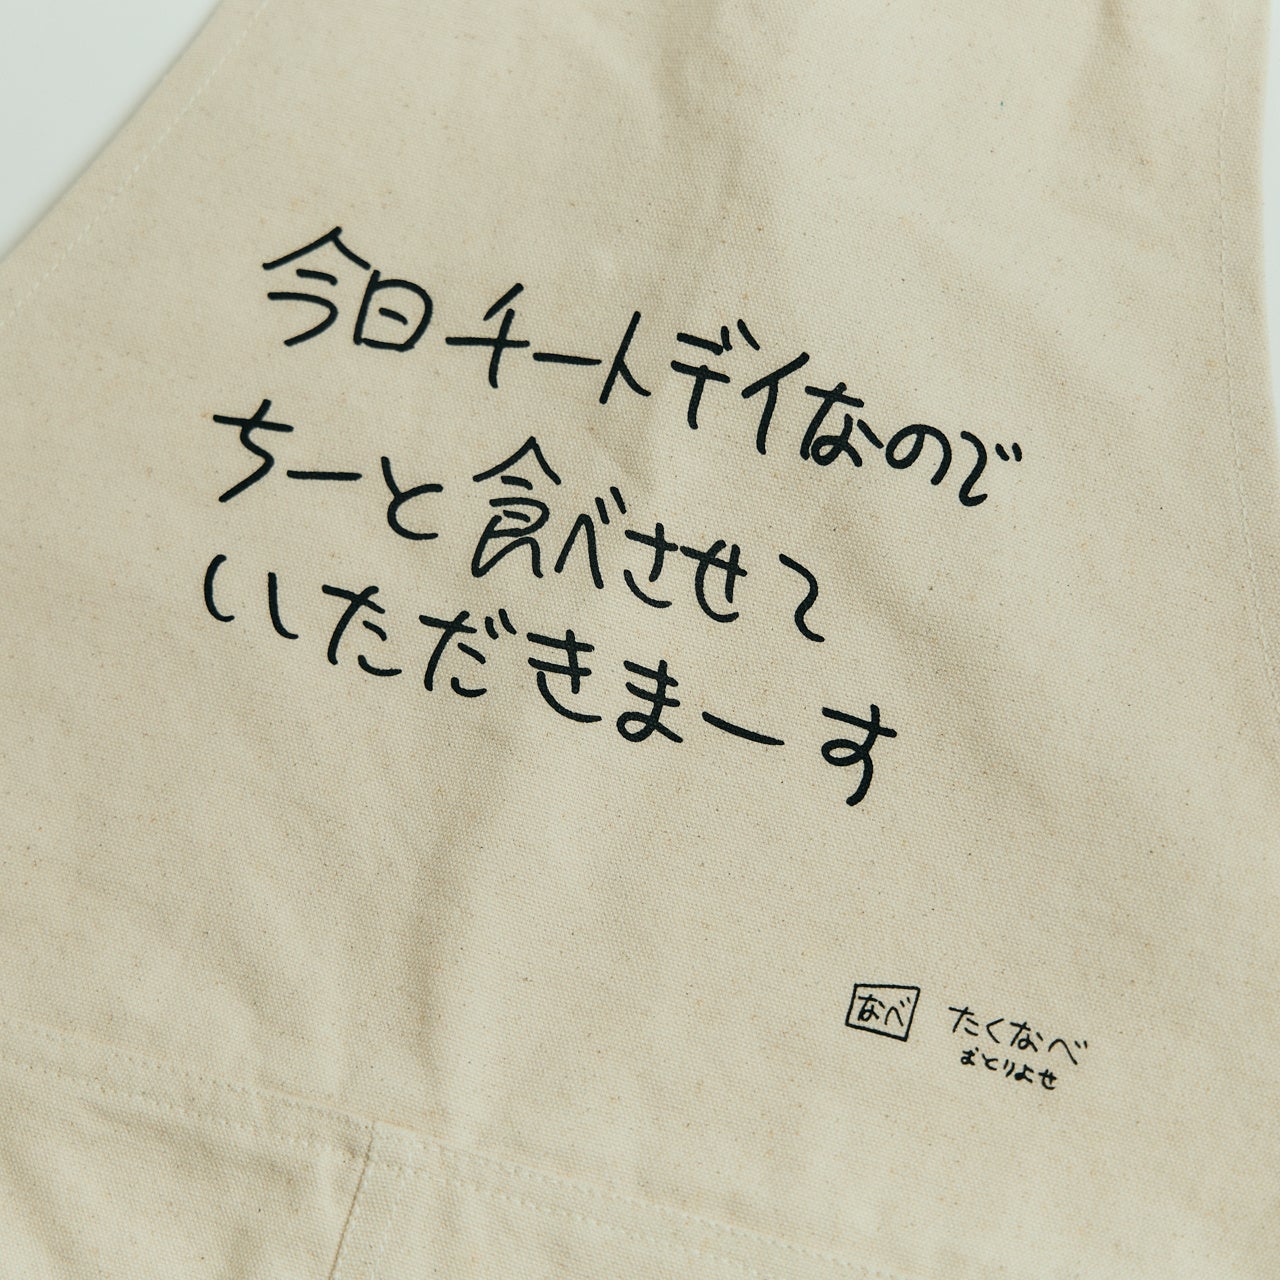 今日チートデイなので
ちーと食べさせて
いただきまーす
なべ
たくなべ
おとりよせ